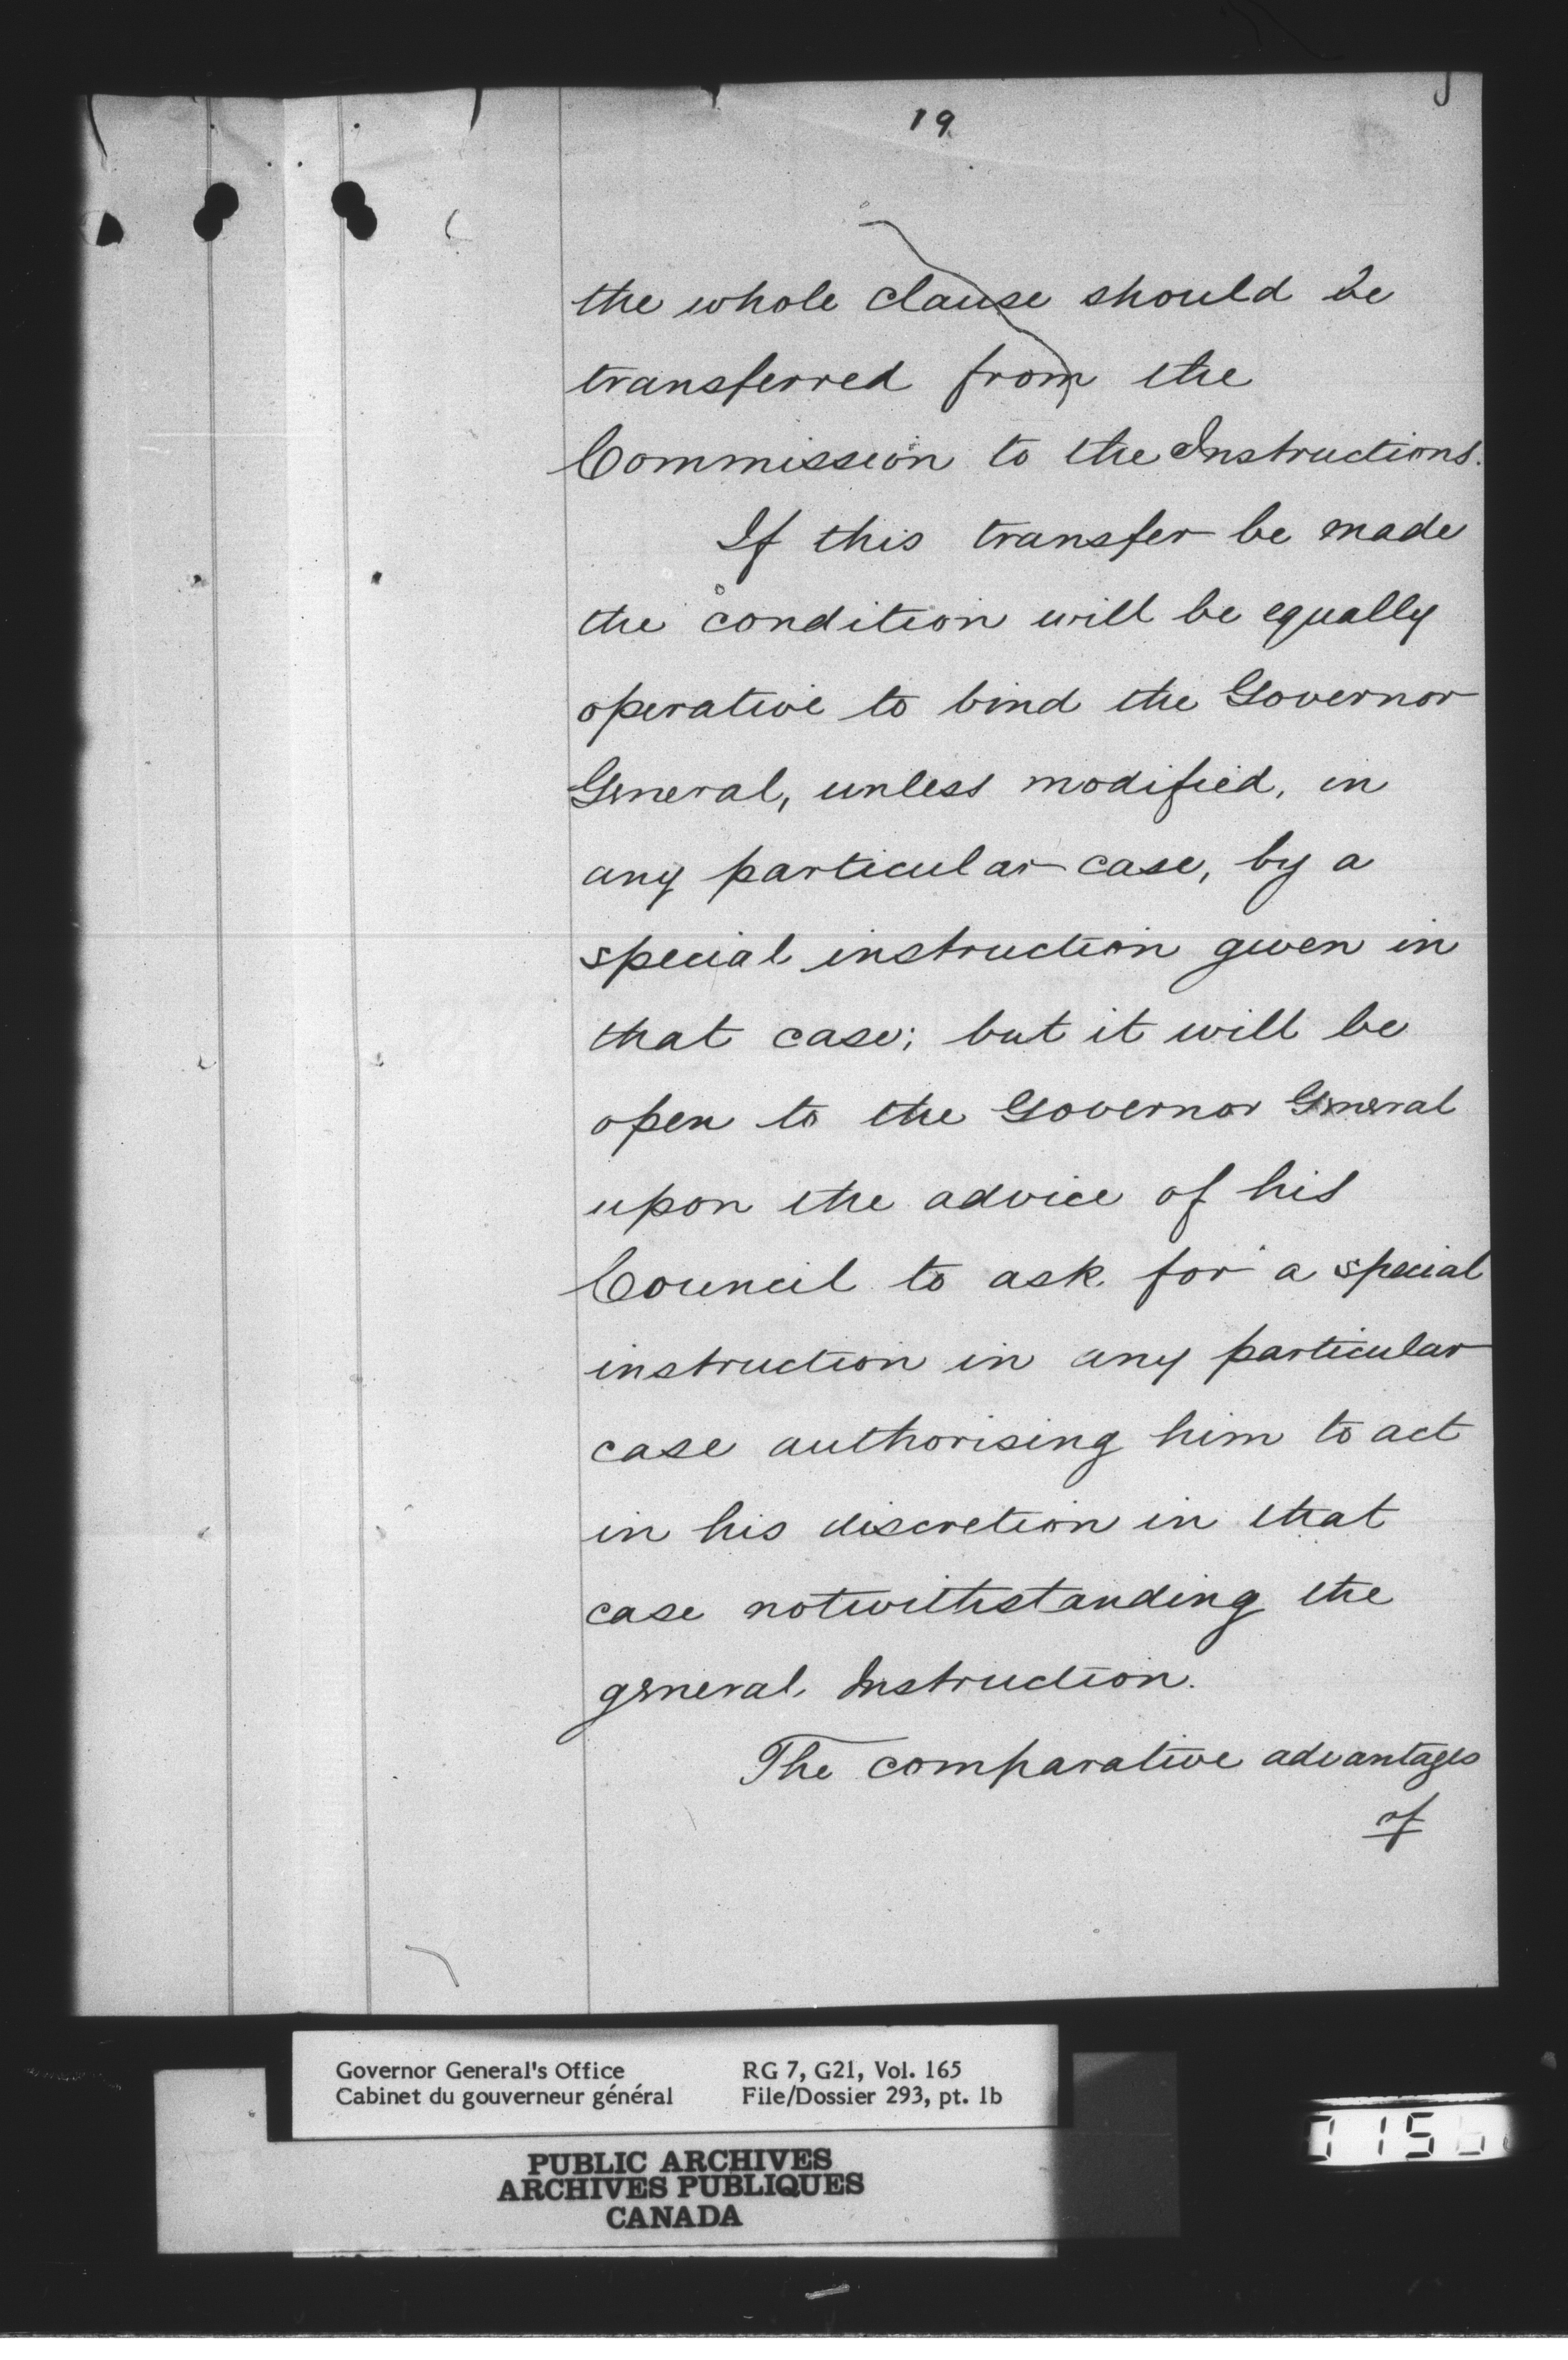 19
the whole clause should be
transferred from the
Commission to the Instructions.
If this transfer be made
the condition will be equally
operative to bind the Governor
General, unless modified, in
any particular case, by a
special instruction given in
that case; but it will be
open to the Governor General
upon the advice of his
Council to ask for a special
instruction in any particular
case authorising him to act
in his discretion in that
case notwithstanding the
general Instruction.
The comparative advantages
of
Governor General's Office
Cabinet du gouverneur général
RG 7, G21, Vol. 165
File/Dossier 293, pt. 1b
PUBLIC ARCHIVES
ARCHIVES PUBLIQUES
CANADA